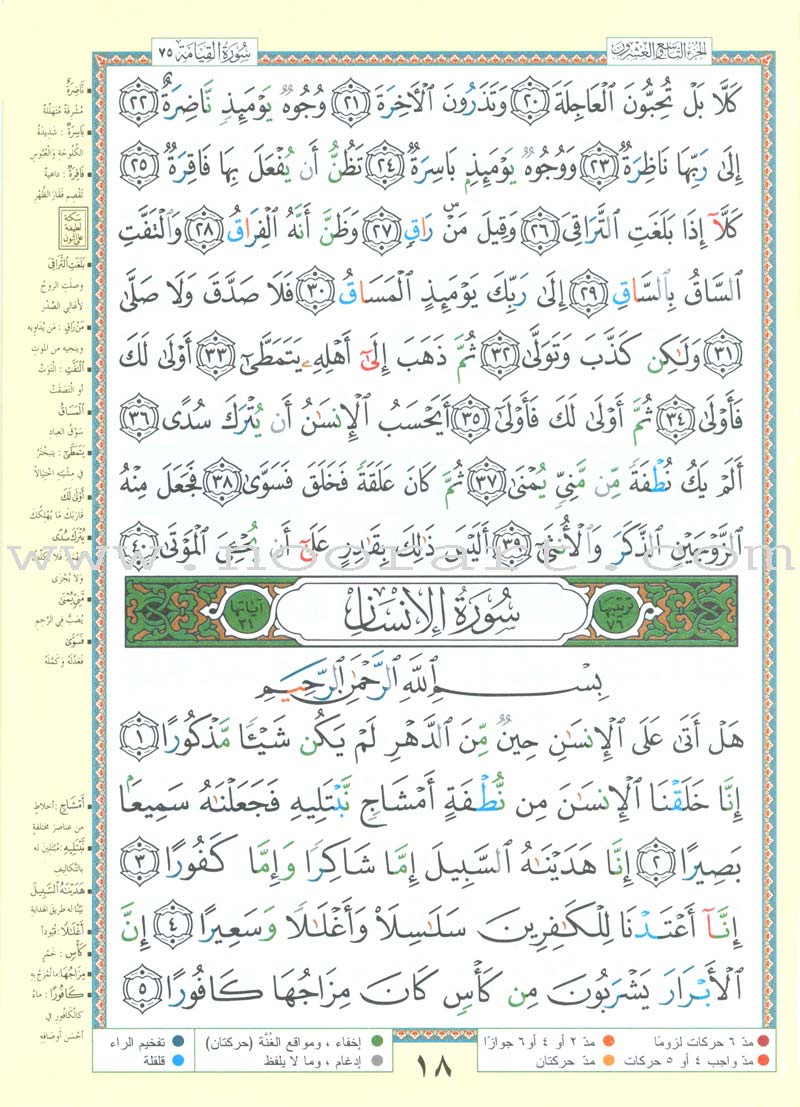 الجزء التاسع والعشرون
سورة القيامة ٧٥
كَلَّا بَلْ تُحِبُّونَ ٱلْعَاجِلَةَ ٢٠ وَتَذَرُونَ ٱلْأَخِرَةَ ٢١ وُجُوهٌ يَوْمَئِذٍ نَّاضِرَةٌ ٢٢
إِلَىٰ رَبِّهَا نَاظِرَةٌ ٢٣ وَوُجُوهٌ يَوْمَئِذٍۭ بَاسِرَةٌ ٢٤ تَظُنُّ أَن يُفْعَلَ بِهَا فَاقِرَةٌ ٢٥
كَلَّآ إِذَا بَلَغَتِ ٱلتَّرَاقِىَ ٢٦ وَقِيلَ مَنْۜ رَاقٍ ٢٧ وَظَنَّ أَنَّهُ ٱلْفِرَاقُ ٢٨ وَٱلْتَفَّتِ
ٱلسَّاقُ بِٱلسَّاقِ ٢٩ إِلَىٰ رَبِّكَ يَوْمَئِذٍ ٱلْمَسَاقُ ٣٠ فَلَا صَدَّقَ وَلَا صَلَّىٰ
٣١ وَلَـٰكِن كَذَّبَ وَتَوَلَّىٰ ٣٢ ثُمَّ ذَهَبَ إِلَىٰٓ أَهْلِهِۦ يَتَمَطَّىٰٓ ٣٣ أَوْلَىٰ لَكَ
فَأَوْلَىٰ ٣٤ ثُمَّ أَوْلَىٰ لَكَ فَأَوْلَىٰٓ ٣٥ أَيَحْسَبُ ٱلْإِنسَـٰنُ أَن يُتْرَكَ سُدًى ٣٦
أَلَمْ يَكُ نُطْفَةً مِّن مَّنِىٍّ يُمْنَىٰ ٣٧ ثُمَّ كَانَ عَلَقَةً فَخَلَقَ فَسَوَّىٰ ٣٨ فَجَعَلَ مِنْهُ
ٱلزَّوْجَيْنِ ٱلذَّكَرَ وَٱلْأُنثَىٰٓ ٣٩ أَلَيْسَ ذَٰلِكَ بِقَـٰدِرٍ عَلَىٰٓ أَن يُحْـِۧىَ ٱلْمَوْتَىٰ ٤٠
ترتيبها ٧٦
سورة الإنسان
آياتها ٣١
بِسْمِ ٱللَّهِ ٱلرَّحْمَـٰنِ ٱلرَّحِيمِ
هَلْ أَتَىٰ عَلَى ٱلْإِنسَـٰنِ حِينٌ مِّنَ ٱلدَّهْرِ لَمْ يَكُن شَيْـًٔا مَّذْكُورًا ١
إِنَّا خَلَقْنَا ٱلْإِنسَـٰنَ مِن نُّطْفَةٍ أَمْشَاجٍ نَّبْتَلِيهِ فَجَعَلْنَـٰهُ سَمِيعًۢا
بَصِيرًا ٢ إِنَّا هَدَيْنَـٰهُ ٱلسَّبِيلَ إِمَّا شَاكِرًا وَإِمَّا كَفُورًا ٣
إِنَّآ أَعْتَدْنَا لِلْكَـٰفِرِينَ سَلَـٰسِلَا۟ وَأَغْلَـٰلًا وَسَعِيرًا ٤ إِنَّ
ٱلْأَبْرَارَ يَشْرَبُونَ مِن كَأْسٍ كَانَ مِزَاجُهَا كَافُورًا ٥
نَاضِرَةٌ
مُشْرِقَةٌ مُتَهَلِّلَةٌ
بَاسِرَةٌ : شديدةُ
الكُلُوحَةِ والعُبُوسِ
فَاقِرَةٌ : داهيةٌ
تَقْصِم فَقَارَ الظَّهْرِ
سكتة
لطيفة
على النون
بَلَغَتِ ٱلتَّرَاقِىَ
وصلتِ الروحُ
لأعَالِي الصَّدْر
مَنْ رَاقٍ : مَن يُدَاوِيهِ
وينجيه من الموتِ
ٱلْتَفَّتِ : الْتَوَتْ
أو الْتَصَقَتْ
ٱلْمَسَاقُ
سَوْقُ العبادِ
يَتَمَطَّىٰٓ : يتبختَرُ
في مِشْيَتِهِ اخْتِيالاً
أَوْلَىٰ لَكَ
قارَبَكَ مَا يُهْلِكُكَ
يُتْرَكَ سُدًى
ولا يُجْزَى
مَنِىٍّ يُمْنَىٰ
يُصَبُّ في الرَّحِمِ
فَسَوَّىٰ
فَعَدَّلَهُ وَكَمَّلَهُ
أَمْشَاجٍ : أخلاطٍ
من عناصرَ مختلفةٍ
نَّبْتَلِيهِ : مُبْتَلِينَ له
بالتَّكَالِيفِ
هَدَيْنَـٰهُ ٱلسَّبِيلَ
بَيَّنَّا له طريقَ الهدايةِ
أَغْلَـٰلًا : قُيُوداً
كَأْسٍ : خَمْرٍ
مِزَاجُهَا : ما تُمْزَجُ بِهِ
كَافُورًا : ماءً
كالكَافُورِ في
أحْسَنِ أوصَافِهِ
www.noorart.com
مدّ ٦ حركات لزومًا
مدّ ٢ أو ٤ أو ٦ جوازًا
إخفاء ، ومواقع الغُنَّة (حركتان)
تفخيم الراء
مدّ واجب ٤ أو ٥ حركات
مدّ حركتان
إدغام ، وما لا يلفظ
قلقلة
١٨